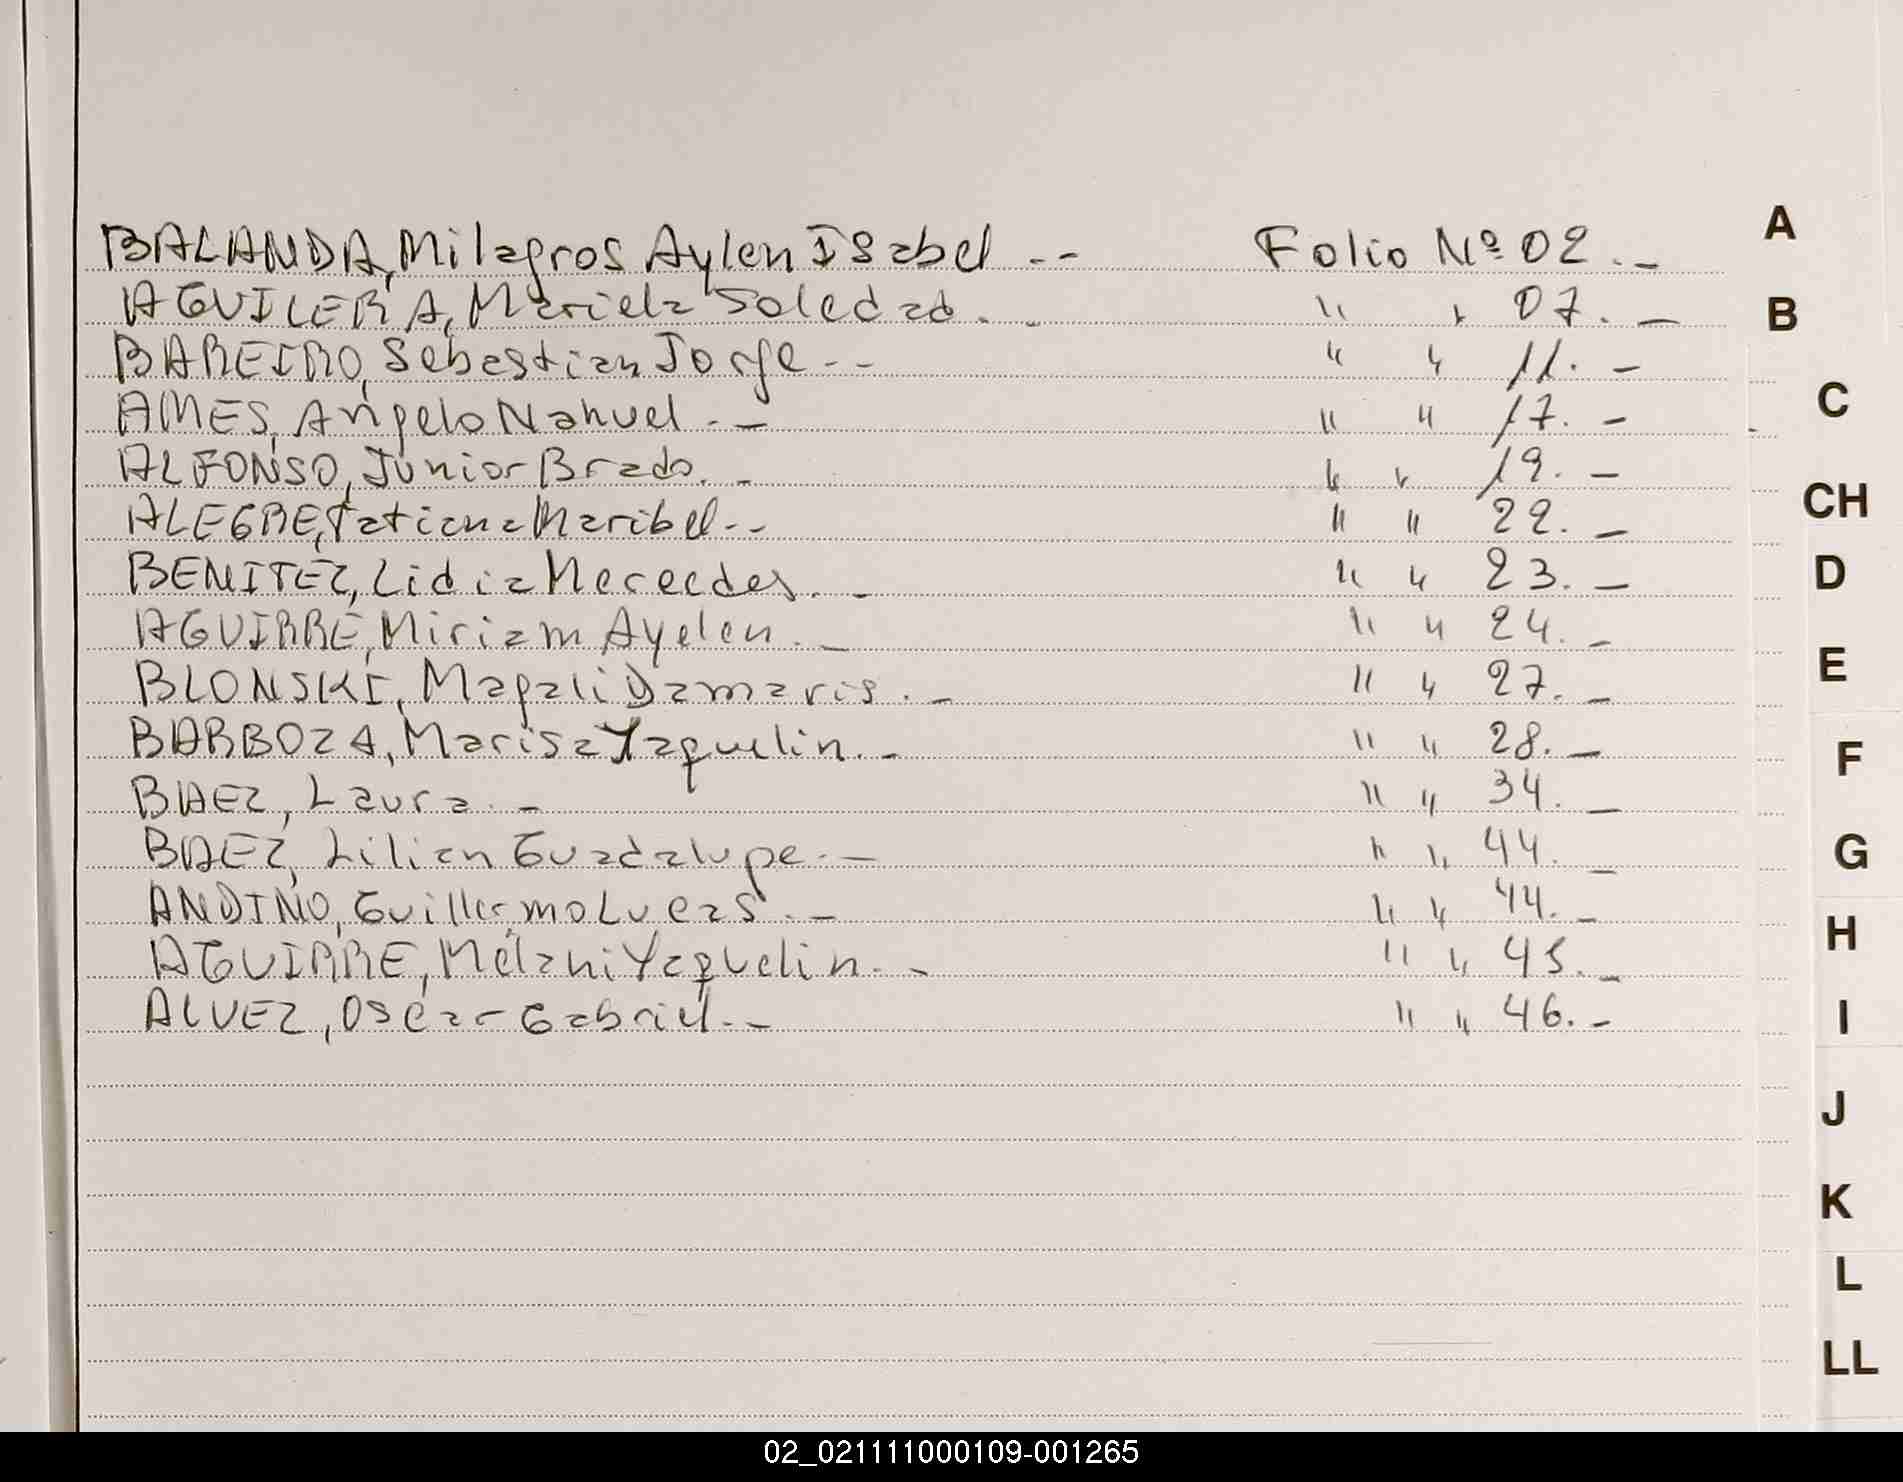 BALANDA, Milagros Aylen Isabel .-- Folio Nº 02.-
AGUILERA, Mariela Soledad. - " " 07.-
BAREIRO, Sebastian Jorge.-- " " 11.-
AMES, Angelo Nahuel.-- " " 17.-
ALFONSO, Junior Brado.- " " 19.-
ALEGRE, Tatiana Maribel.-- " " 22.-
BENITEZ, Lidia Mercedes.- " " 23.-
AGUIRRE, Miriam Ayelen.- " " 24.-
BLONSKI, Magali Damaris.- " " 27.-
BARBOZA, Marisa Yaquelin.- " " 28.-
BAEZ, Laura.- " " 34.-
BAEZ, Lilian Guadalupe.- " " 44.-
ANDINO, Guillermo Lucas.- " " 44.-
AGUIRRE, Melani Yaquelin.- " " 45.-
ALVEZ, Oscar Gabriel.-- " " 46.-
A
B
C
CH
D
E
F
G
H
I
J
K
L
LL
02_021111000109-001265